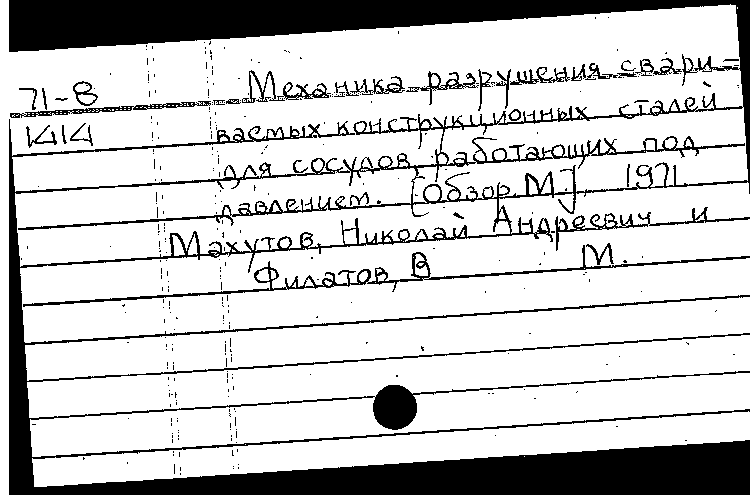 71-8 Механика разрушения свари=
1414 ваемых конструкционных сталей
для сосудов, работающих под
давлением. [Обзор. М.], 1971.
Махутов, Николай Андреевич и
Филатов, В М.